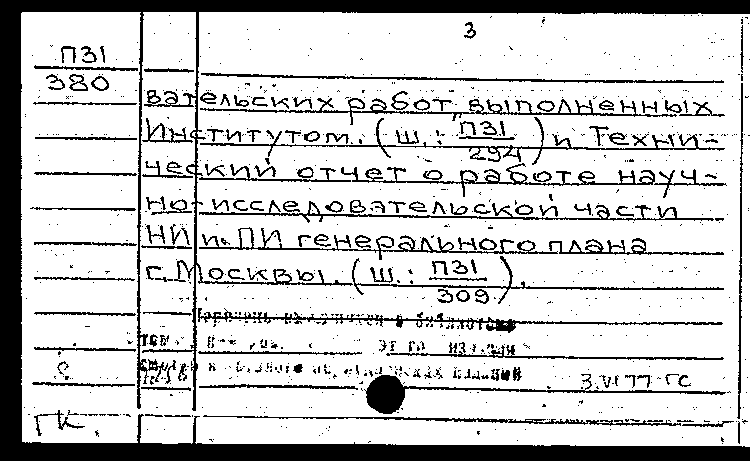 3
П31
380
вательских работ, выполненных
Институтом. (Ш.: П31
294) и Техни-
ческий отчет о работе науч-
но-исследовательской части
НИ и ПИ генерального плана
г. Москвы. (Ш.: П31
309).
в библиотеке
3.VI 77 ГС
ГК.